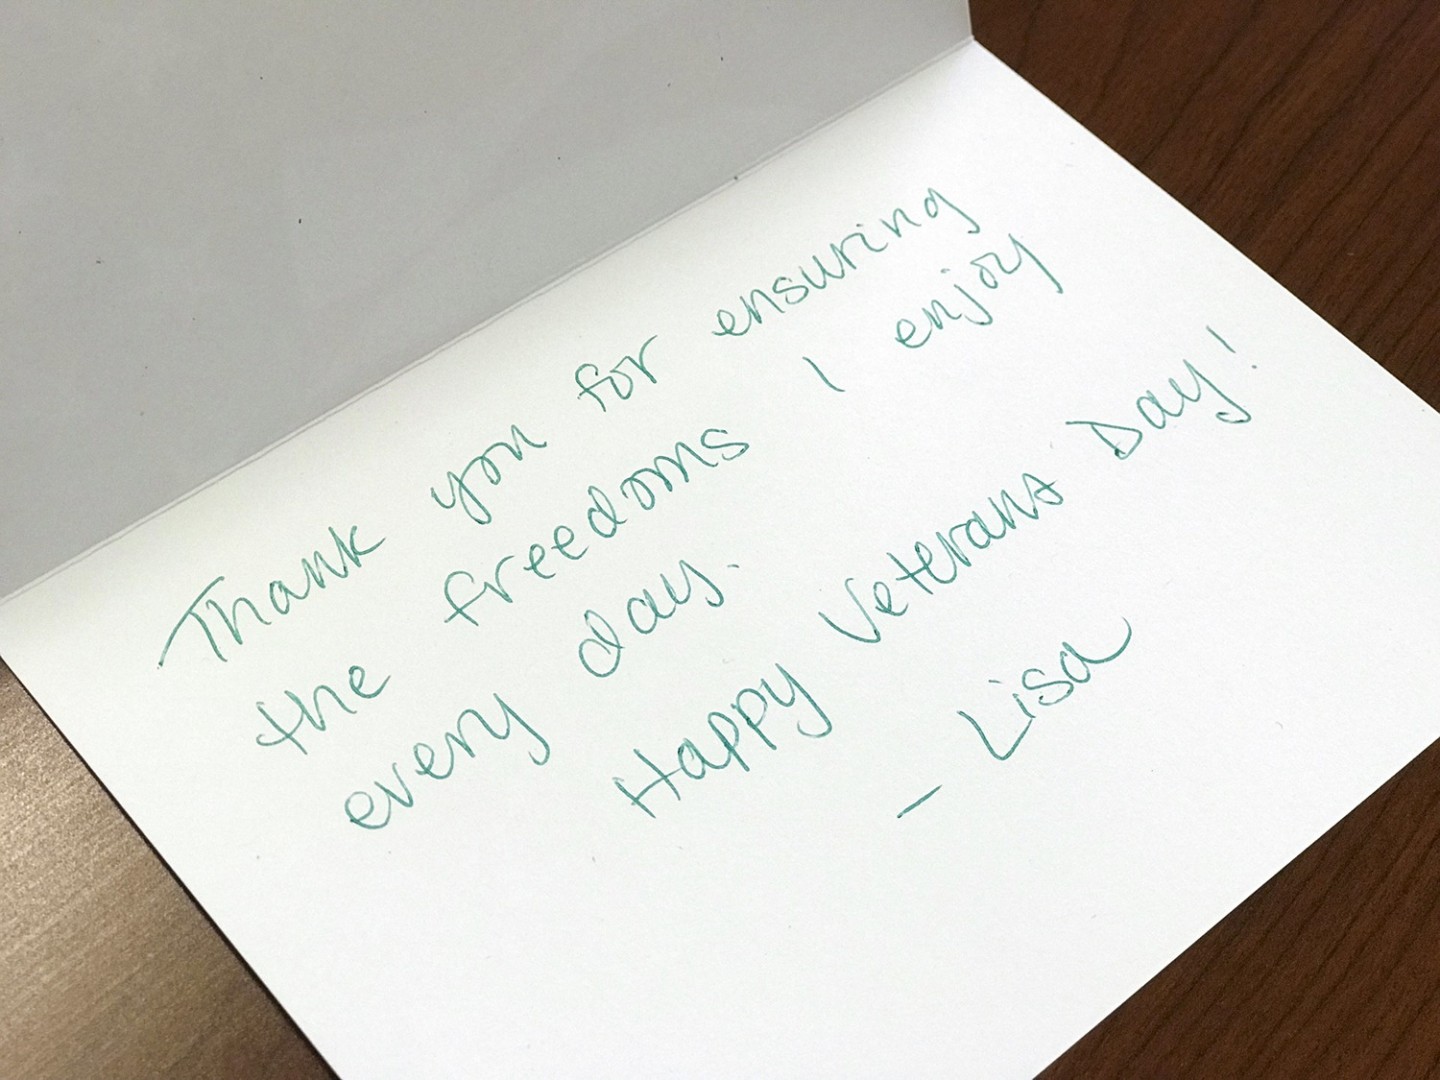 Thank you for ensuring
the freedoms I enjoy
every day.
Happy Veterans Day!
- Lisa